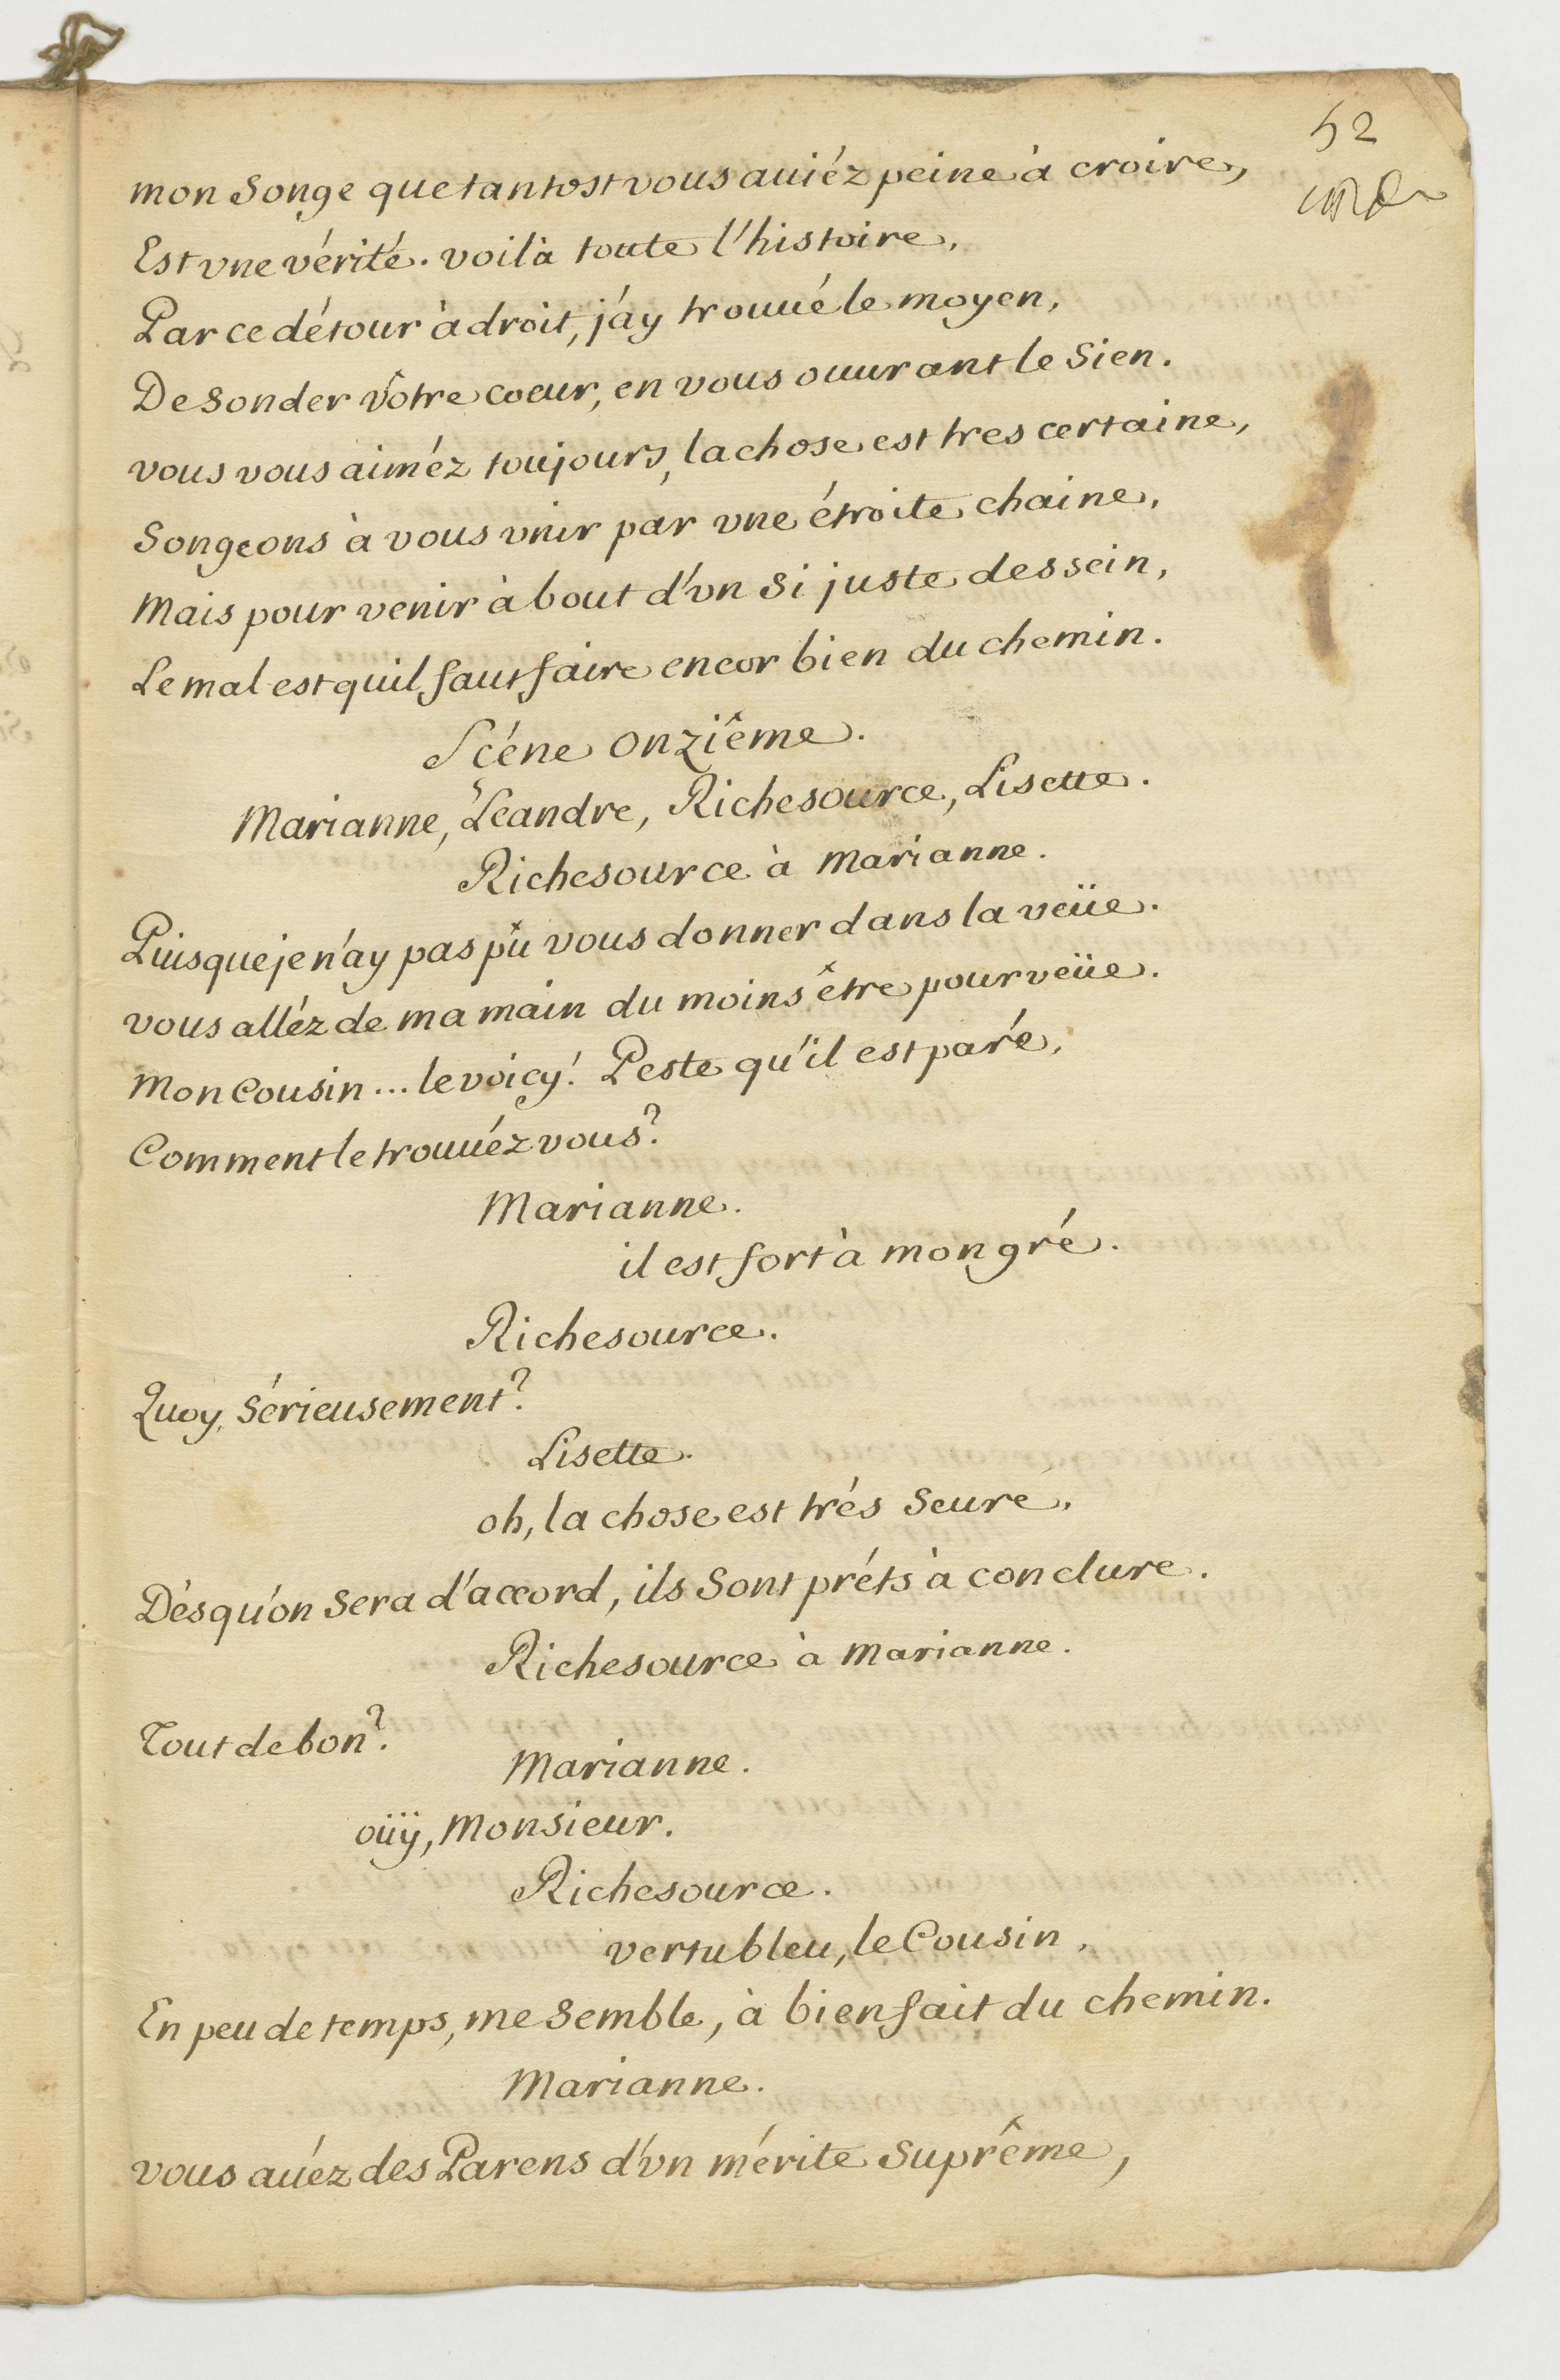 52
mon Songe que tantost vous auiéz peine à croire,
Est vne vérité. voilà toute l'histoire,
Par ce détour àdroit, j'ay trouué le moyen,
De Sonder vôtre coeur, en vous ouurant le Sien.
vous vous aiméz toujours, la chose est tres certaine,
Songeons à vous vnir par vne étroite chaine,
Mais pour venir à bout d'vn Si juste dessein,
Le mal est quil faut faire encor bien du chemin.
Scéne onziême.
Marianne, Leandre, Richesource, Lisette.
Richesource à Marianne.
Puisque je n'ay pas pû vous donner dans la veüe.
vous alléz de ma main du moins être pourveüe.
Mon Cousin... le voicy! Peste qu'il est paré,
Comment le trouuéz vous?
Marianne.
il est fort à mon gré.
Richesource.
Quoy, Sérieusement?
Lisette.
oh, la chose est trés Seure,
Dés qu'on Sera d'accord, ils Sont préts à conclure.
Richesource à Marianne.
Tout de bon?
Marianne.
oüÿ, Monsieur.
Richesource.
vertubleu, le Cousin,
En peu de temps, me Semble, à bien fait du chemin.
Marianne.
vous auéz des Parens d'vn mérite Suprême,